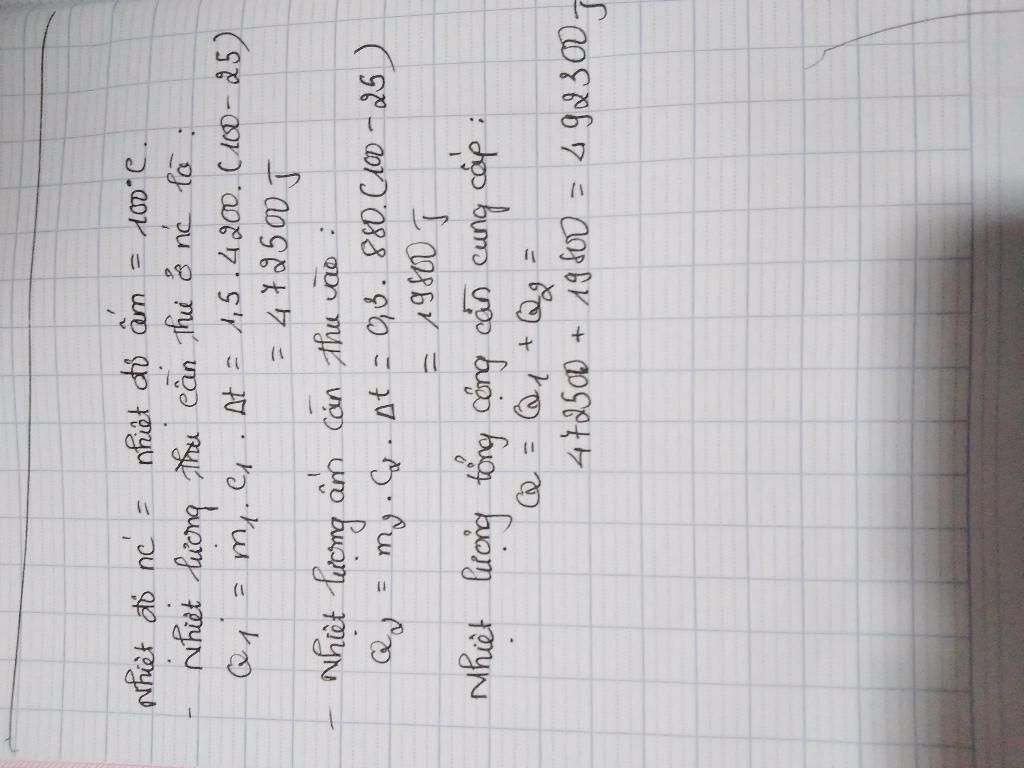 Nhiệt độ nć = nhiệt độ ấm = 100°C.
- Nhiệt lượng thu cần thu ở nć là:
Q1 = m1. C1. Δt = 1,5.4200.(100-25)
= 472500 J
- Nhiệt lượng ấm cần thu vào:
Q2 = m2. C2. Δt = 0,3. 880.(100-25)
= 19800 J
Nhiệt lượng tổng cộng cần cung cấp:
Q = Q1 + Q2 =
472500 + 19800 = 492300 J